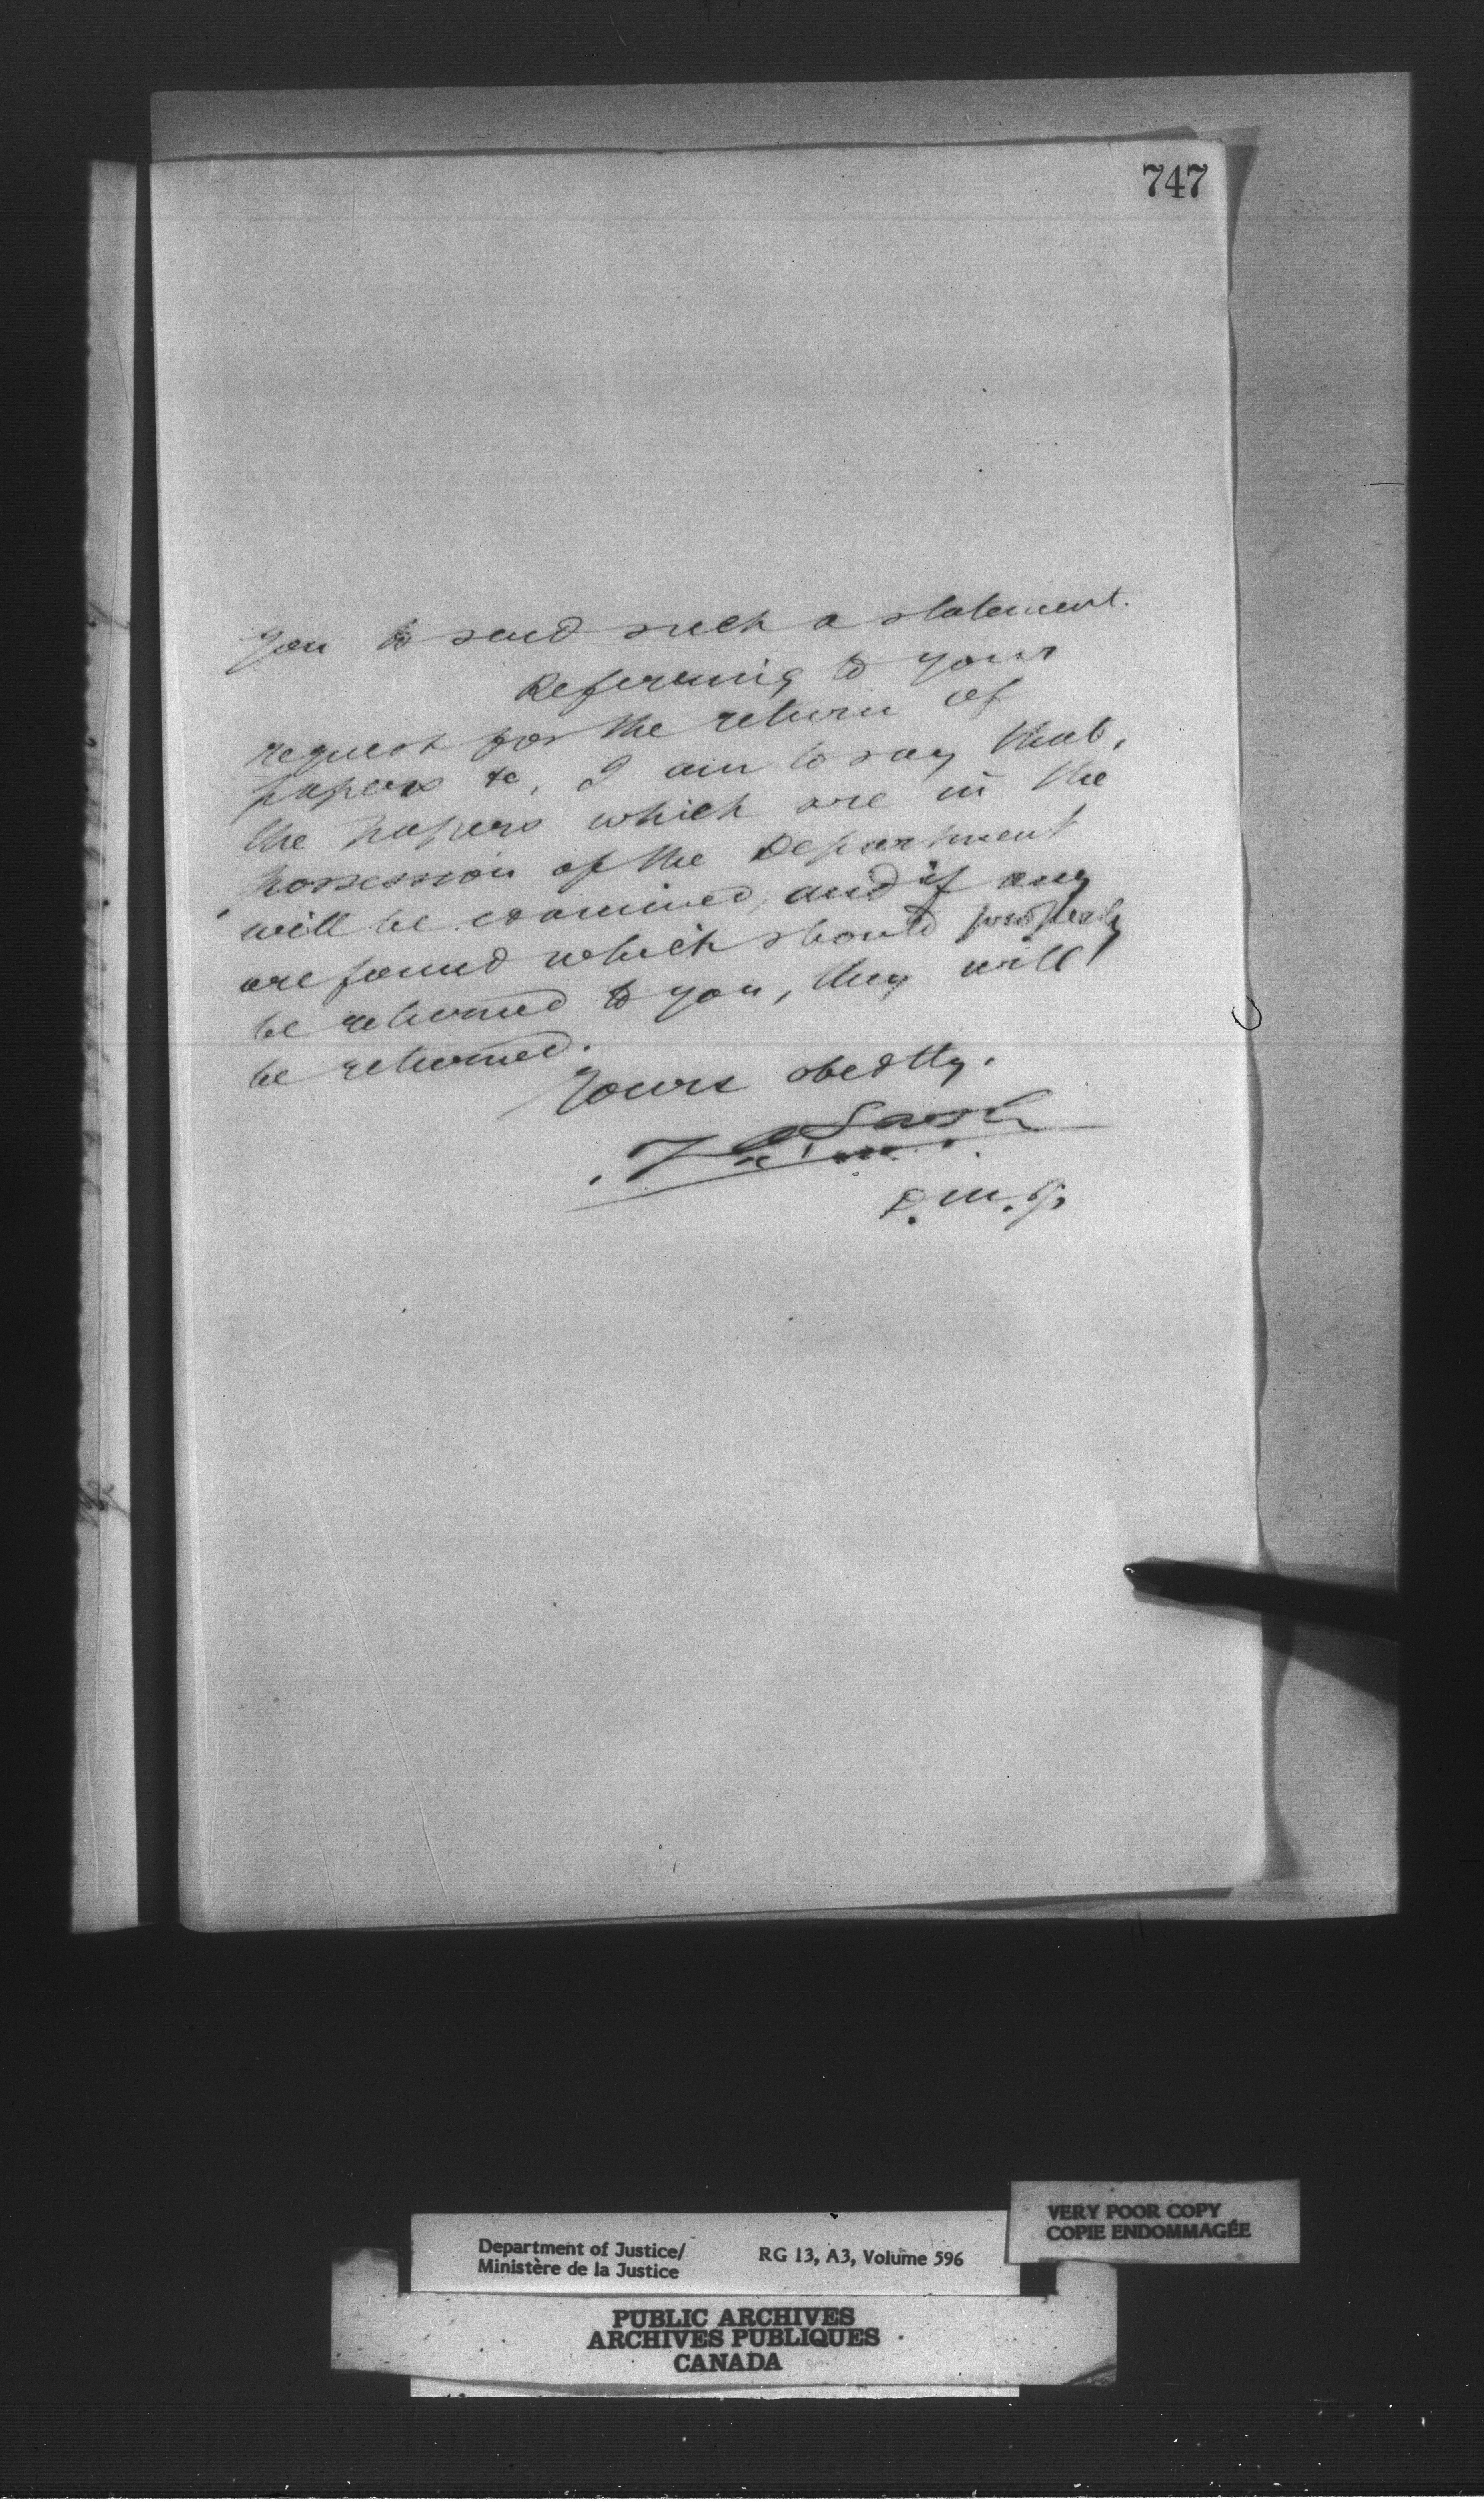 747
you to send such a statement.
Referring to your
request for the return of
papers &c, I am to say that,
the papers which are in the
possession of the Department
will be examined, and if any
are found which should properly
be returned to you, they will
be returned.
Yours obedtly.
Z A Lash
D.M.J.
Department of Justice/
Ministère de la Justice
RG 13, A3, Volume 596
VERY POOR COPY
COPIE ENDOMMAGÉE
PUBLIC ARCHIVES
ARCHIVES PUBLIQUES
CANADA